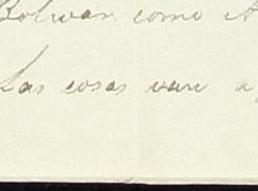 Bolivar como A
Las cosas van a